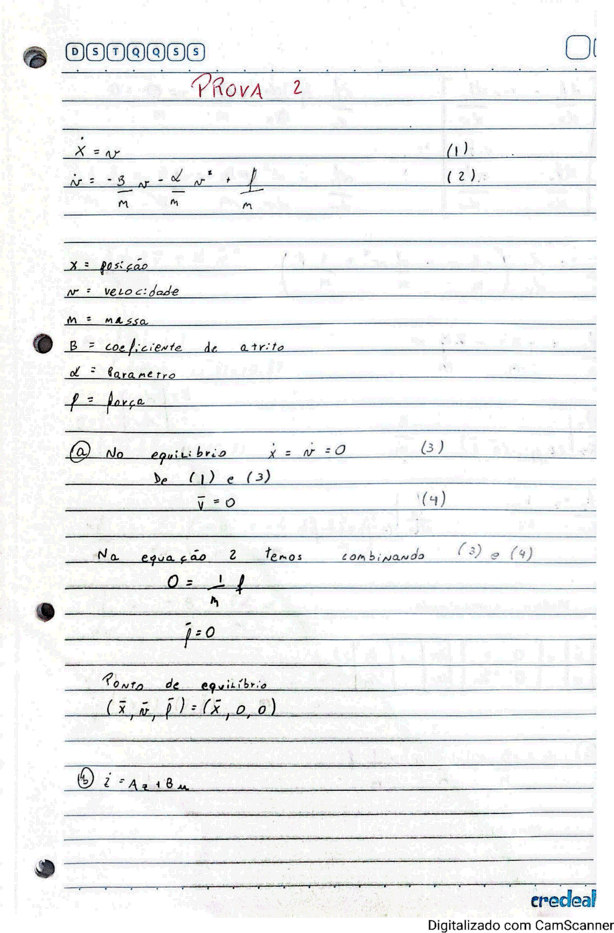 D S T Q Q S S
PROVA 2
ẋ = v (1)
v̇ = -B/m v - α/m v² + f/m (2).
x = posição
v = velocidade
m = massa
B = coeficiente de atrito
α = Parametro
f = força
(a) No equilibrio ẋ = v̇ = 0 (3)
De (1) e (3)
v̄ = 0 (4)
Na equação 2 temos combinando (3) e (4)
0 = 1/m f
f̄ = 0
Ponto de equilíbrio
(x̄, v̄, f̄) = (x̄, 0, 0)
(b) ż = Az + Bu
credeal
Digitalizado com CamScanner